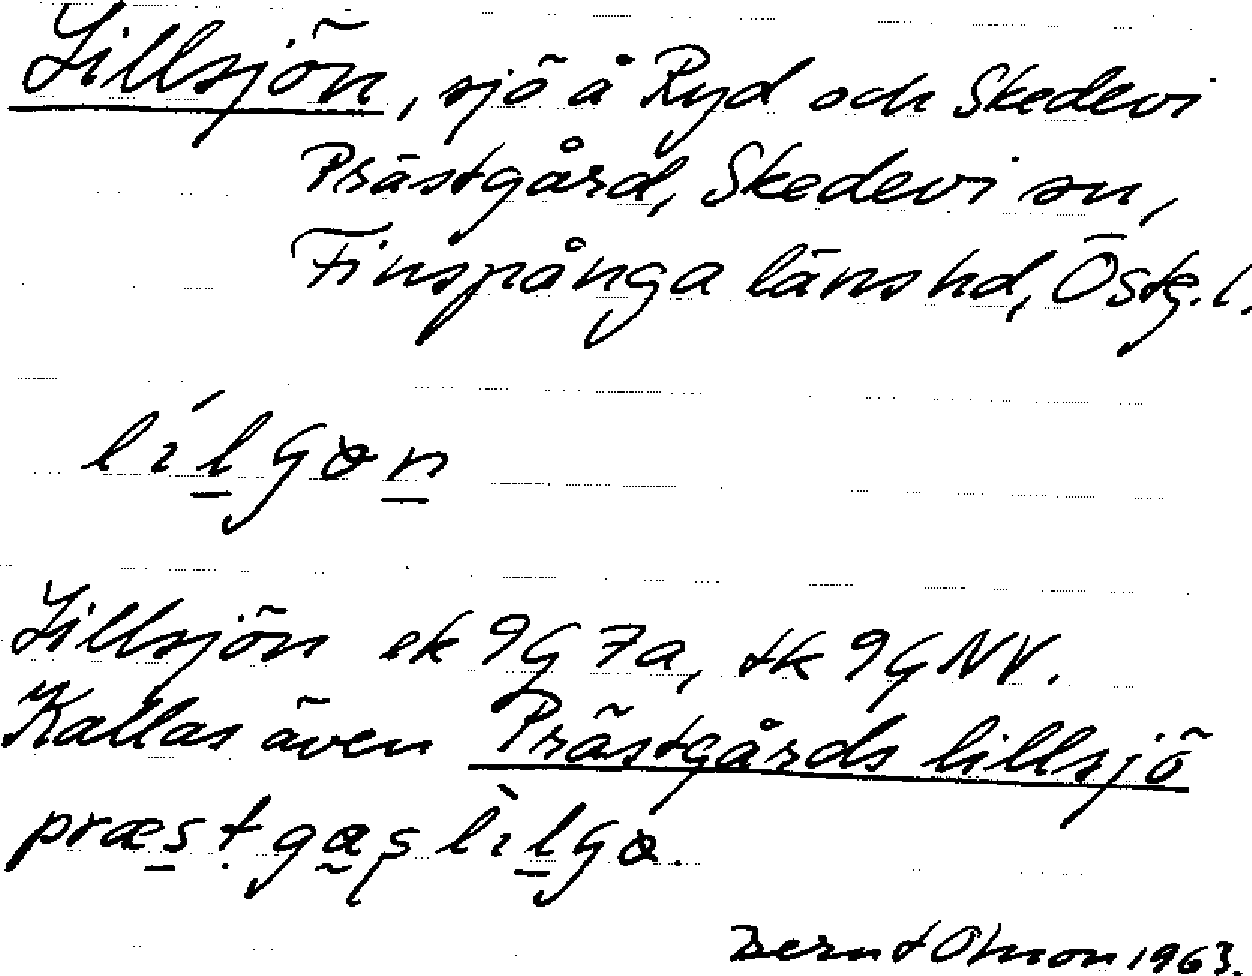 Lillsjön, sjö å Ryd och Skedevi
Prästgård, Skedevi sn,
Finspånga läns hd, Östg.l.
Lillsjön ek 9G 7a, tk 9G NV.
Kallas även Prästgårds lillsjö
Bernt Olsson 1963.